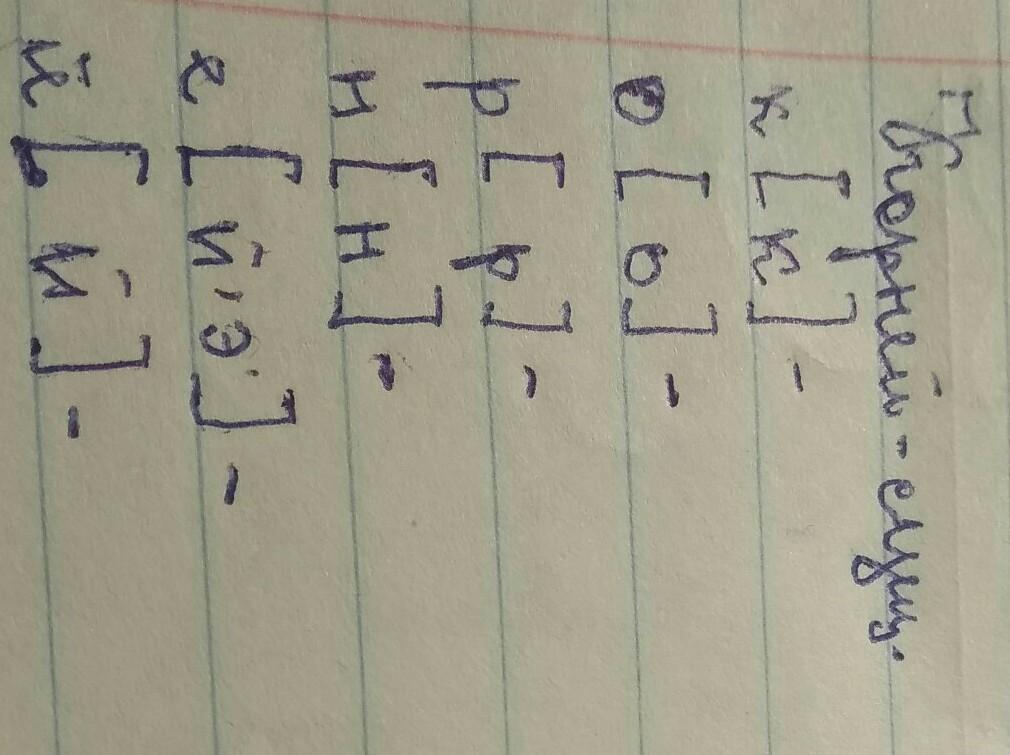 Корней - слущ.
к [к] -
о [о] -
р [р] -
н [н] -
е [й'э] -
й [й] -